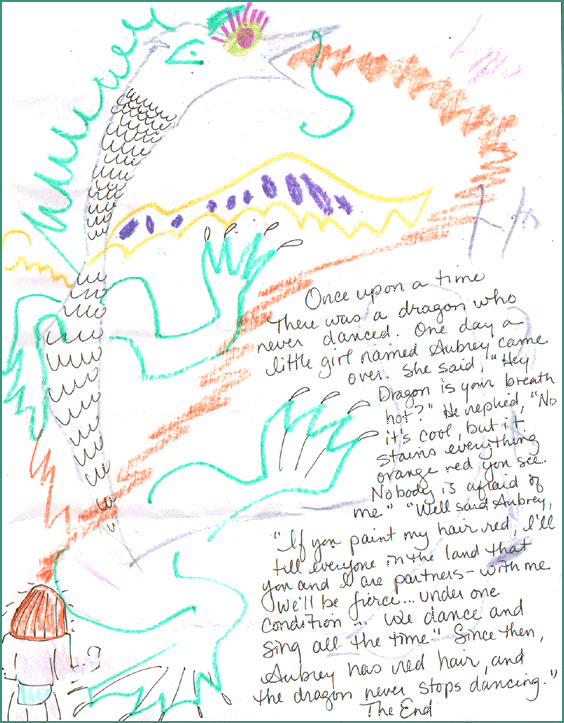 Once upon a time
There was a dragon who
never danced. One day a
little girl named Aubrey came
over. She said, "Hey
Dragon is your breath
hot?" He replied, "No
it's cool, but it
stains everything
orange red you see.
Nobody is afraid of
me." "Well said Aubrey,
"If you paint my hair red, I'll
tell everyone in the land that
you and I are partners - with me
we'll be fierce... under one
condition... we dance and
sing all the time." Since then,
Aubrey has red hair, and
the dragon never stops dancing."
The End